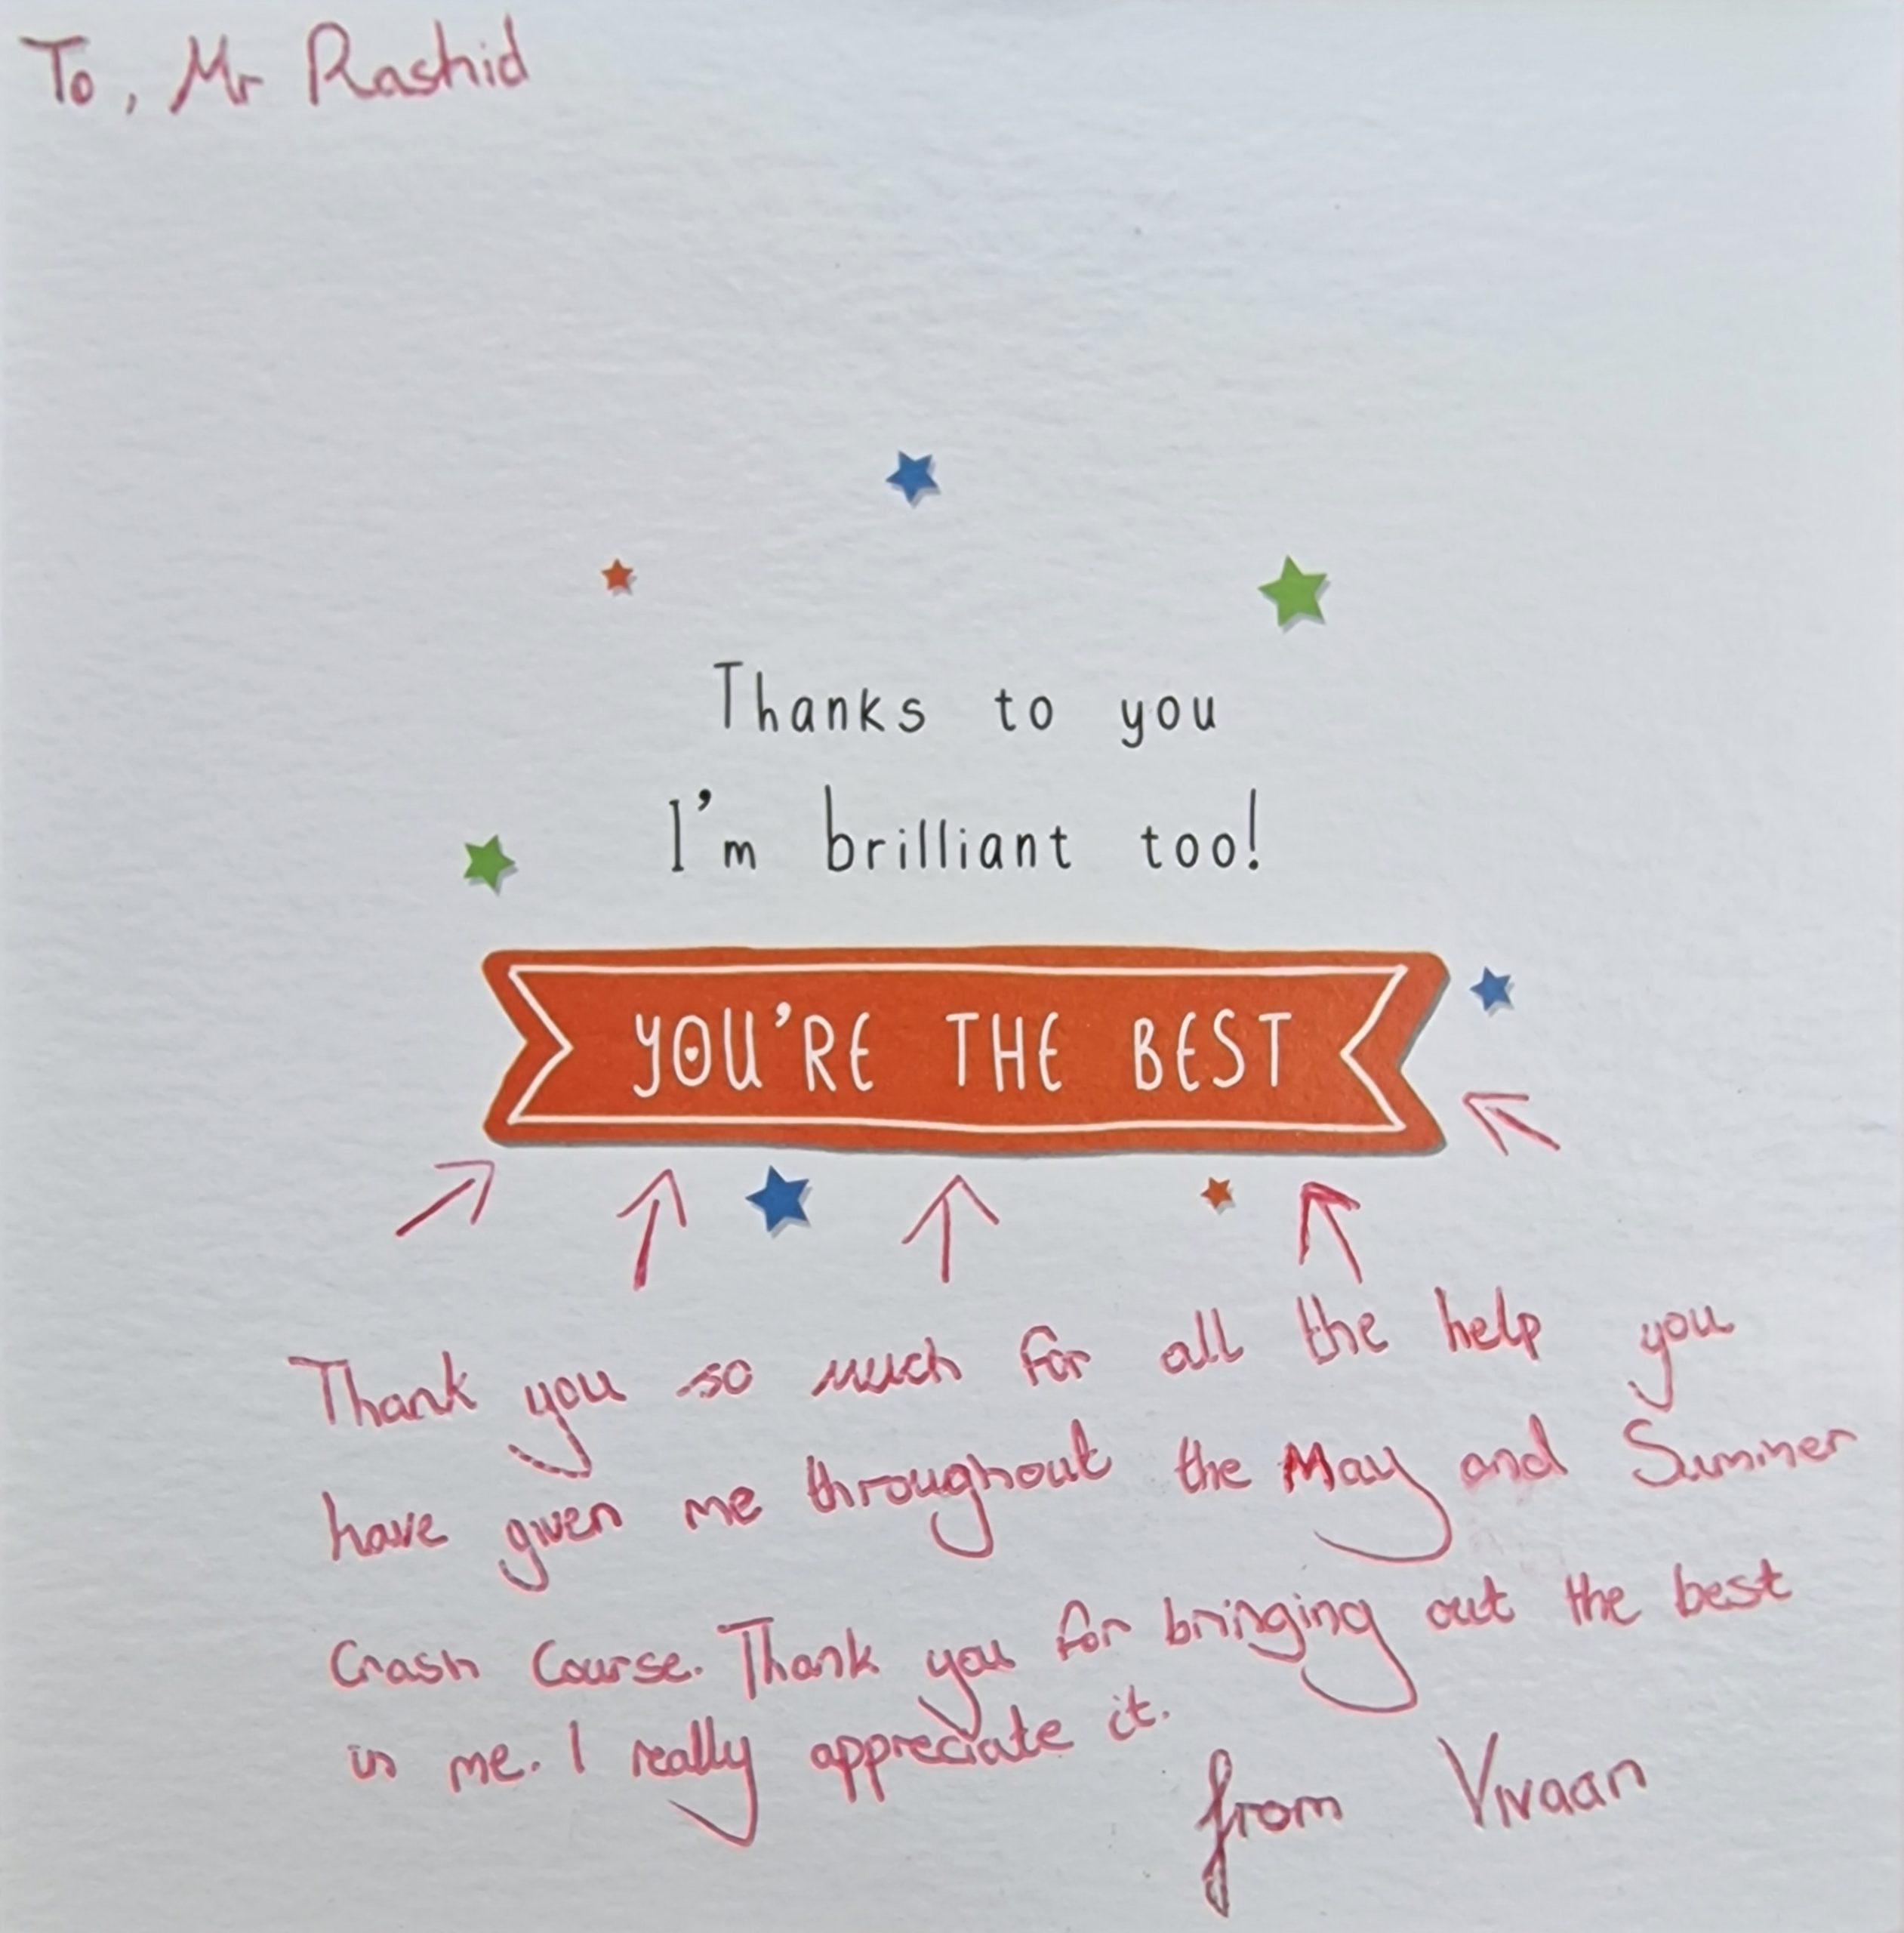 To, Mr Rashid
Thanks to you
I'm brilliant too!
YOU'RE THE BEST
Thank you so much for all the help you
have given me throughout the May and Summer
Crash Course. Thank you for bringing out the best
in me. I really appreciate it.
from Vivaan